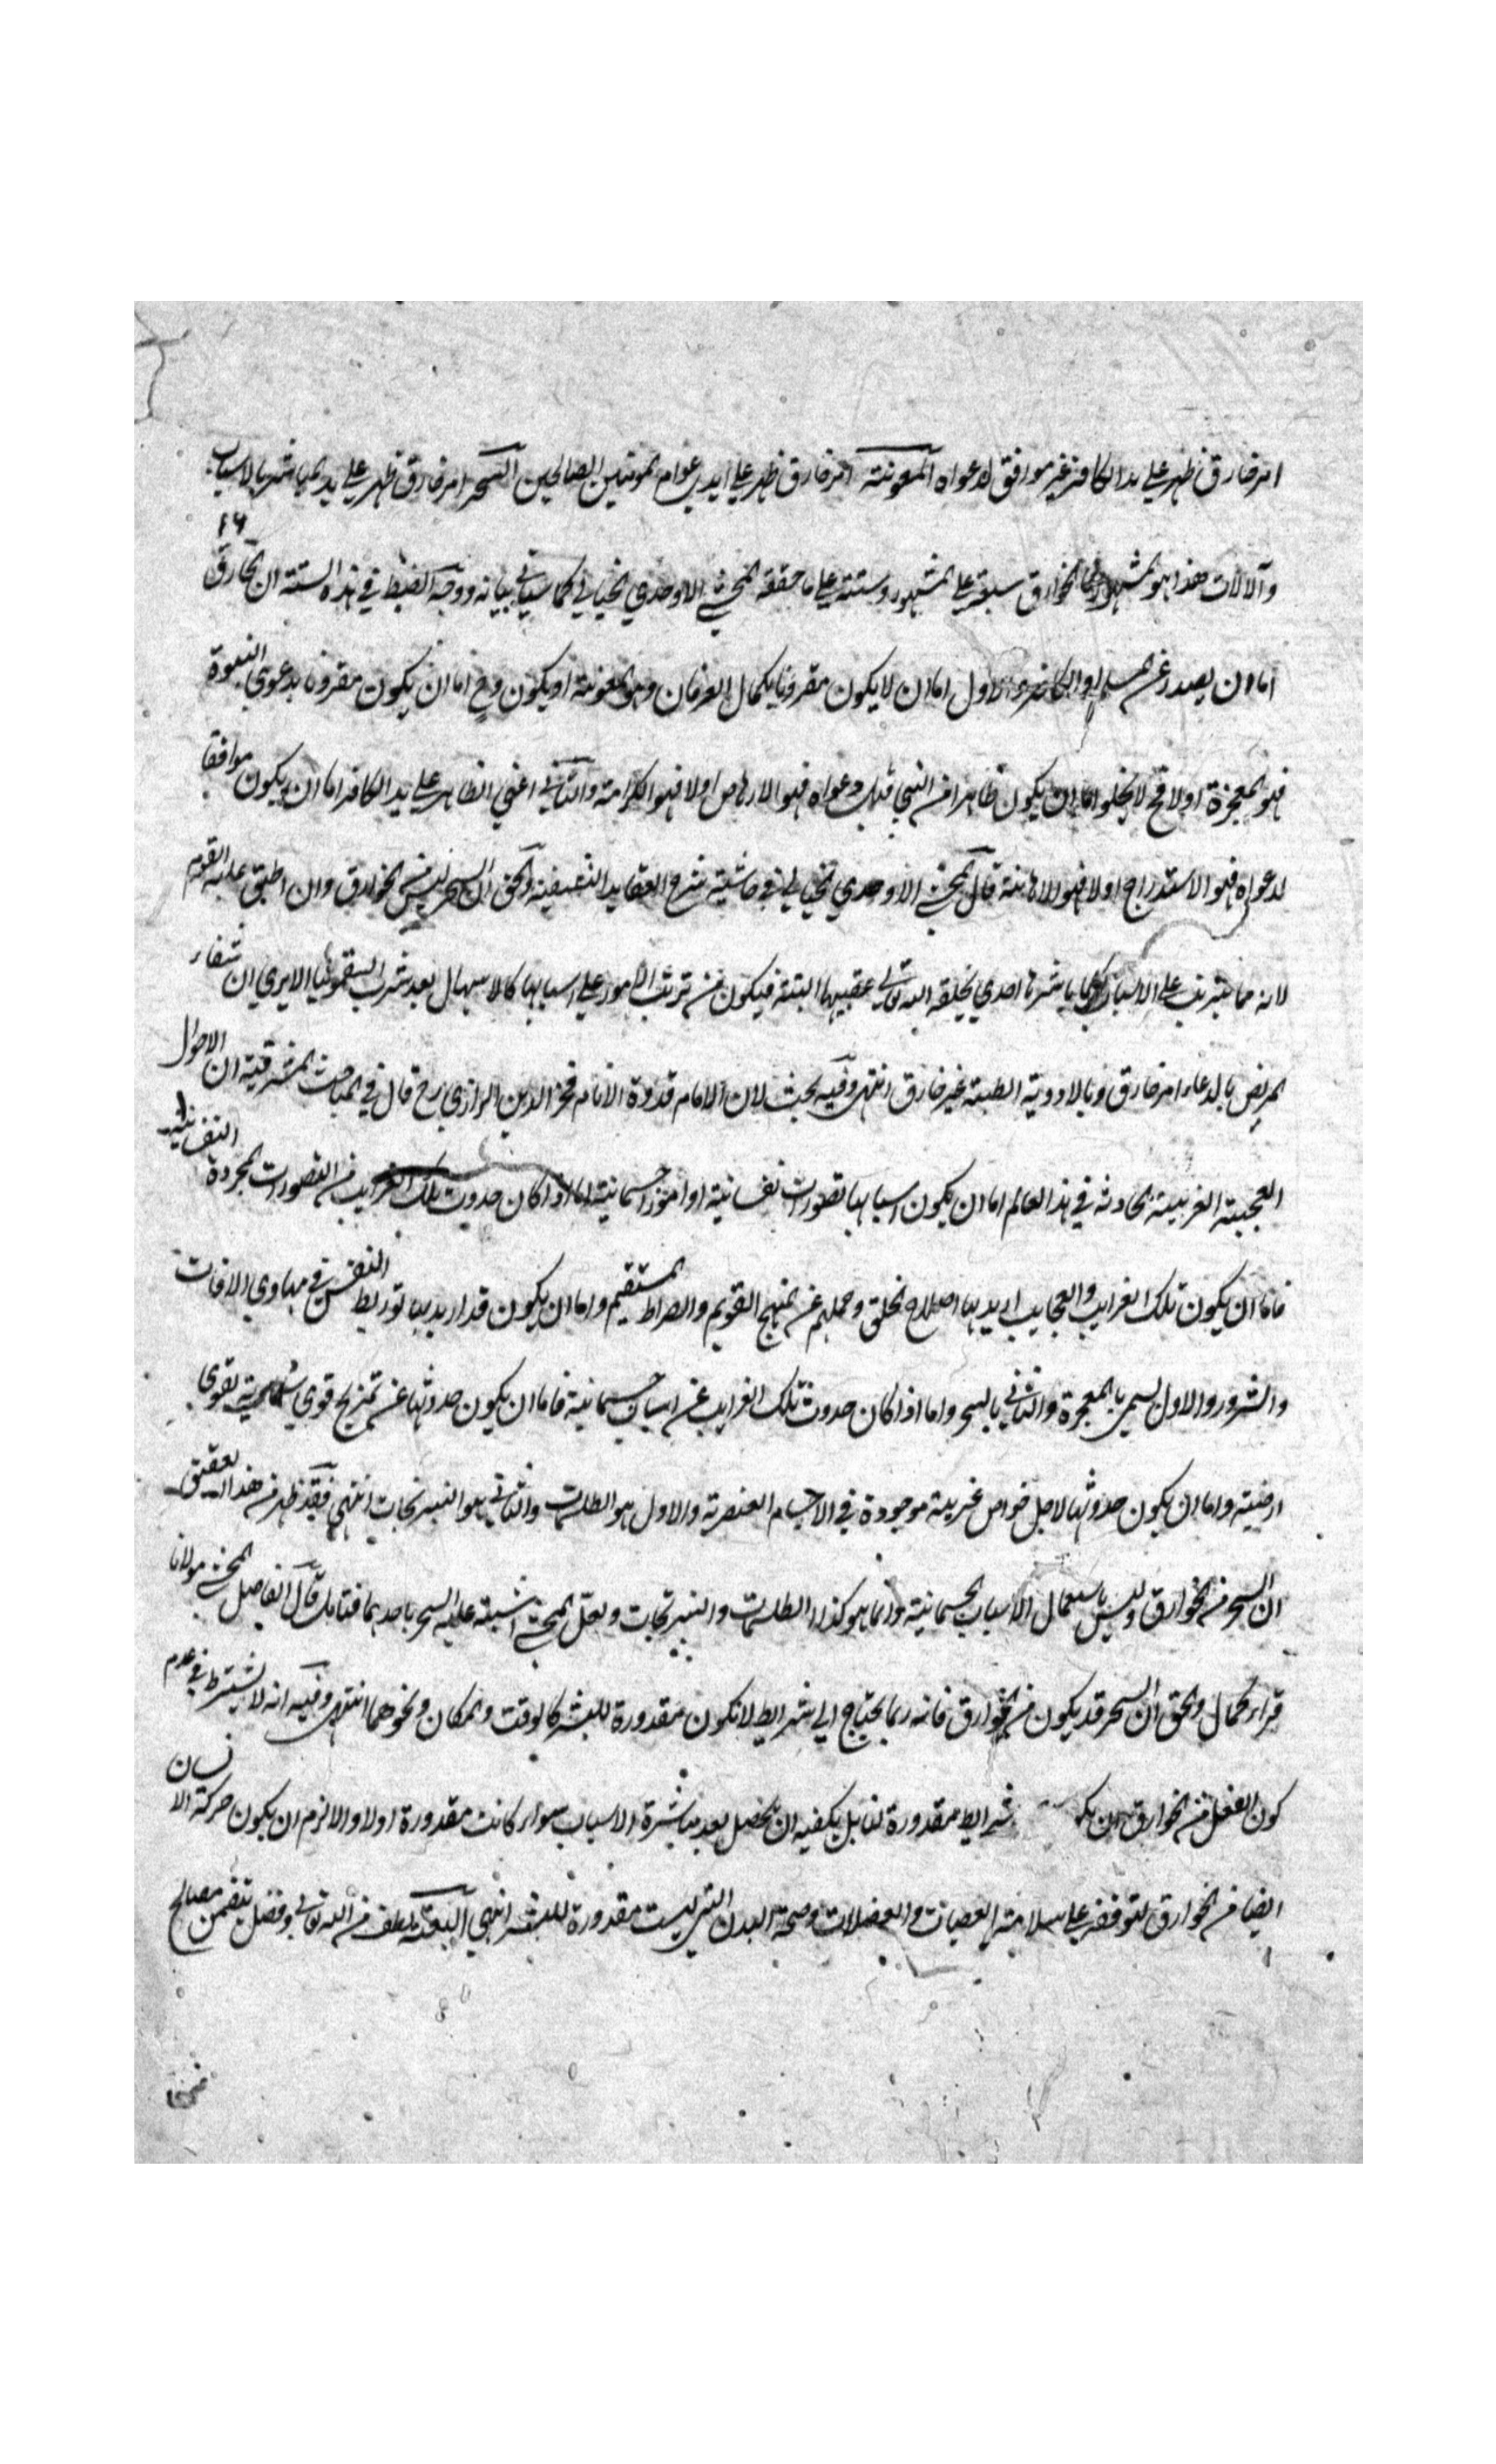 امر خارق ظهر على يد الكافر غير موافق لدعواه المعونته امر خارق ظهر على ايدي عوام المومنين الصالحين السحر امر خارق ظهر على يد المباشر بالاسباب
١٦
وآلالات هذا هو المشهور فالخوارق سبعة على المشهور وستته على ما حققه المحشي الاوحدي الخيالي كما سياتي بيانه ووجه الضبط في هذه الستته ان الخارق
اما ان يصدر عن المسلم او الكافر والاول اما ان لا يكون مقرونا بكمال العرفان وهو المعونته او يكون وح اما ان يكون مقرونا بدعوى النبوة
فهو المعجزة اولا فح لا يخلو اما ان يكون ظاهرا من النبي قبل دعواه فهو الارهاص اولا فهو الكرامته والثاني اعني الظاهر على يد الكافر اما ان يكون موافقا
لدعواه فهو الاستدراج اولا فهو الاهانته قال المحشي الاوحدي الخيالي في حاشيته شرح العقايد النسفيته والحق ان السحر ليس من الخوارق وان اطبق عليه القوم
لانه مما يترتب على الاسباب كلما باشرها احدي يخلقه الله تعالى عقيبها البتته فيكون من ترتب الامور على اسبابها كالاسهال بعد شرب السقمونيا الا يري ان شفاء
المريض بالدعاء امر خارق وبالادويته الطبيته غير خارق انتهى وفيه بحث لان الامام قدوة الانام فخر الدين الرازي رح قال في المباحث المشرقيته ان الاحوال
العجيبته الغريبته الحادثه في هذا العالم اما ان يكون اسبابها تصورات نفسانيته او امورا جسمانيته اما اذا كان حدوث تلك الغرايب من التصورات المجردة النفسانيه
فاما ان يكون تلك الغرايب والعجايب اريد بها اصلاح الخلق وحملهم عن المنهج القويم والصراط المستقيم واما ان يكون قد اريد بها توريط النفس في مهاوي الافات
والشرور والاول يسمى بالمعجزة والثاني بالسحر واما اذا كان حدوث تلك الغرايب عن اسباب جسمانيته فاما ان يكون حدوثها عن تمزيج قوي سماويته بقوي
ارضيته واما ان يكون حدوثها لاجل خواص غريبته موجودة في الاجسام العنصريته والاول هو الطلسمات والثاني هو النيرنجات انتهى فقد ظهر من هذا التحقيق
ان السحر من الخوارق وليس باستعمال الاسباب الجسمانيته وانما هو كذا الطلسمات والنيرنجات ولعل المحشي اشتبه عليه السحر باحدهما فتامل قال الفاضل المحشي مولانا
قراء كمال والحق ان السحر قد يكون من الخوارق فانه ربما يحتاج الي شرايط لا تكون مقدورة للبشر كالوقت والمكان ونحوهما انتهى وفيه انه لا يشترط في عدم
كون الفعل من الخوارق ان يكو شرايط مقدورة لنا بل يكفيه ان يحصل بعد مباشرة الاسباب سواء كانت مقدورة اولا والا لزم ان يكون حركة الانسان
ايضا من الخوارق لتوقفه على سلامته العصبات والعضلات وصحة البدن التي ليست مقدورة للبشر انتهي البعثه لطف من الله تعالى وفضل يتضمن مصالح